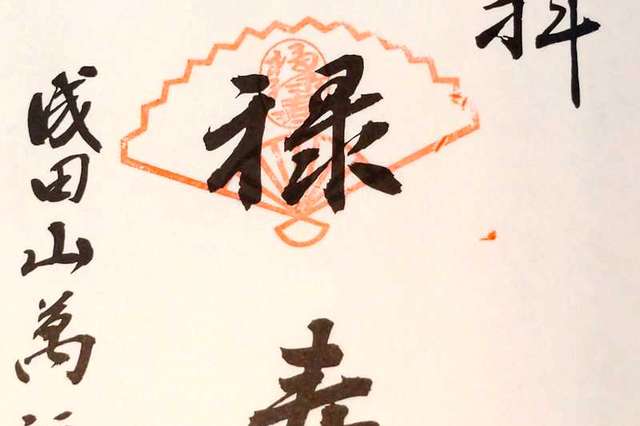 拝
禄寿
成田山萬